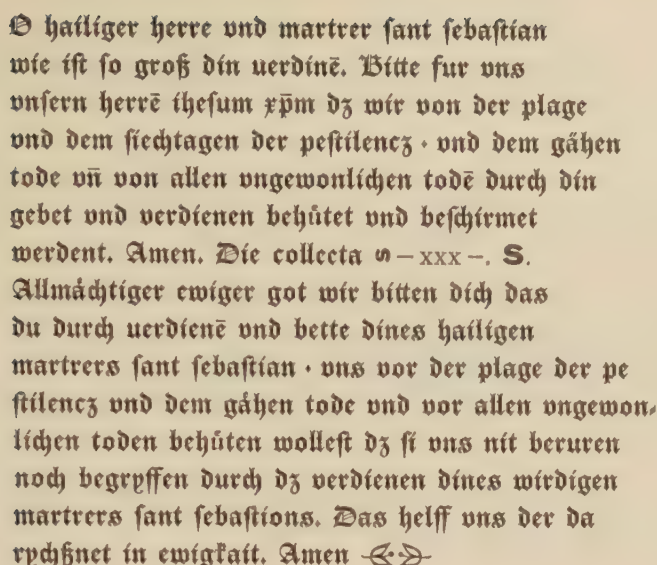 O hailiger herre vnd martrer sant sebastian
wie ist so groß din uerdinē. Bitte fur vns
vnsern herrē ihesum xp̄m dꝫ wir von der plage
vnd dem siechtagen der pestilencz · vnd dem gähen
tode vn̄ von allen vngewonlichen todē durch din
gebet vnd verdienen behůtet vnd beschirmet
werdent. Amen. Die collecta – xxx –. S.
Allmächtiger ewiger got wir bitten dich das
du durch uerdienē vnd bette dines hailigen
martrers sant sebastian · vns vor der plage der pe
stilencz vnd dem gähen tode vnd vor allen vngewon⸗
lichen toden behůten wollest dꝫ si vns nit beruren
noch begryffen durch dꝫ verdienen dines wirdigen
martrers sant sebastions. Das helff vns der da
rychßnet in ewigkait. Amen